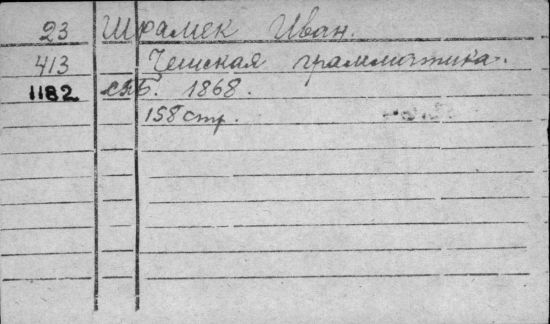 23 Шрамек Иван.
413 Чешская грамматика.
1182 СПБ. 1868.
158 стр.